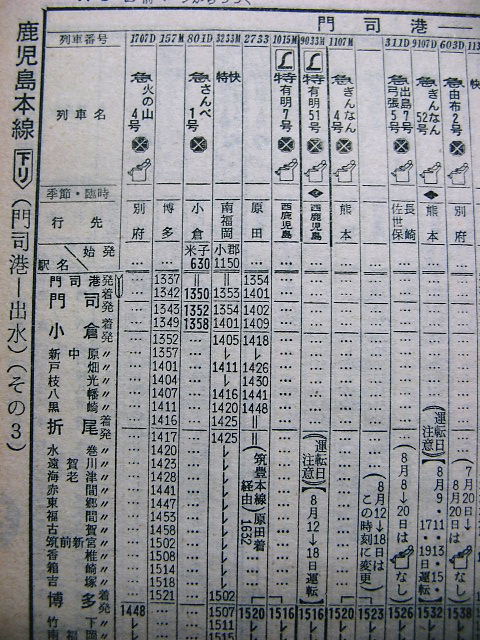 門司港―
鹿児島本線 下り (門司港―出水) (その3)
列車番号 1707D 157M 801D 3233M 2733 1015M 9033M 1107M 311D 9107D 603D
列車名 急 火の山4号 急 さんべ1号 特快 L特 有明7号 L特 有明51号 急 ぎんなん4号 急 出島7号 弓張5号 急 ぎんなん52号 急 由布2号
季節・臨時
行先 別府 博多 小倉 南福岡 原田 西鹿児島 西鹿児島 熊本 長崎 佐世保 熊本 別府
始発 米子 小郡
駅名 630 1150
門司港発 … 1337 … ‖ 1354
門司着発 … 1342 1350 1353 1401
… 1343 1352 1354 1402
小倉着発 … 1349 1358 1401 1409
… 1352 … 1405 1418
新中原〃 … 1357 … レ …
戸畑〃 … 1401 … 1411 1426
枝光〃 … 1404 … レ 1430
八幡〃 … 1407 … 1416 1441
黒崎〃 … 1411 … 1420 1448
折尾着発 … 1416 … 1425 ‖
… 1417 … 1425 ‖
水巻〃 … 1420 … レ
遠賀川〃 … 1423 … レ
海老津〃 … 1428 … レ
赤間〃 … 1441 … レ
東郷〃 … 1447 … レ
福間〃 … 1453 … レ
古賀〃 … 1458 … レ
筑前新宮〃 … 1502 … レ
香椎〃 … 1508 … レ
箱崎〃 … 1514 … レ
吉塚〃 … 1518 … レ
博多着発 … 1521 … 1502
1448 … … 1507 1520 1516 1516 1520 1523 1526 1532 1538
竹下〃 レ … … 1511
南福岡
筑豊本線経由 原田着1632
(運転日注意)
(8月12→18日運転)
(8月12→18日はこの時刻に変更)
(8月8→20日は なし)
(運転日注意)
(7月20日→8月20日は なし)